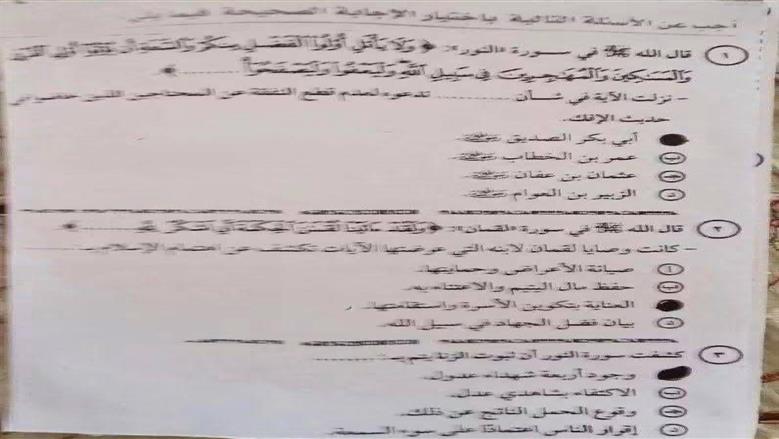 أجب عن الأسئلة التالية باختيار الإجابة الصحيحة
١ قال الله ﷺ في سورة «النور»: ﴿وَلَا يَأْتَلِ أُولُو الْفَضْلِ مِنكُمْ وَالسَّعَةِ أَن يُؤْتُوا أُولِي الْقُرْبَىٰ
وَالْمَسَاكِينَ وَالْمُهَاجِرِينَ فِي سَبِيلِ اللَّهِ وَلْيَعْفُوا وَلْيَصْفَحُوا ........﴾.
- نزلت الآية في شأن ........ تدعوه لعدم قطع النفقة عن المحتاجين الذين
حديث الإفك.
أبي بكر الصديق
ب عمر بن الخطاب
ج عثمان بن عفان
د الزبير بن العوام
٢ قال الله ﷺ في سورة «لقمان»: ﴿وَلَقَدْ آتَيْنَا لُقْمَانَ الْحِكْمَةَ أَنِ اشْكُرْ لِلَّهِ ........﴾
- كانت وصايا لقمان لابنه التي عرضتها الآيات تكشف عن اهتمام الإسلام ........
أ صيانة الأعراض وحمايتها.
ب حفظ مال اليتيم والاعتناء به.
العناية بتكوين الأسرة واستقامتها.
د بيان فضل الجهاد في سبيل الله.
٣ كشفت سورة النور أن ثبوت الزنا يتم بـ ........
وجود أربعة شهداء عدول.
ب الاكتفاء بشاهدي عدل.
ج وقوع الحمل الناتج عن ذلك.
د إقرار الناس اعتمادًا على سوء السمعة.